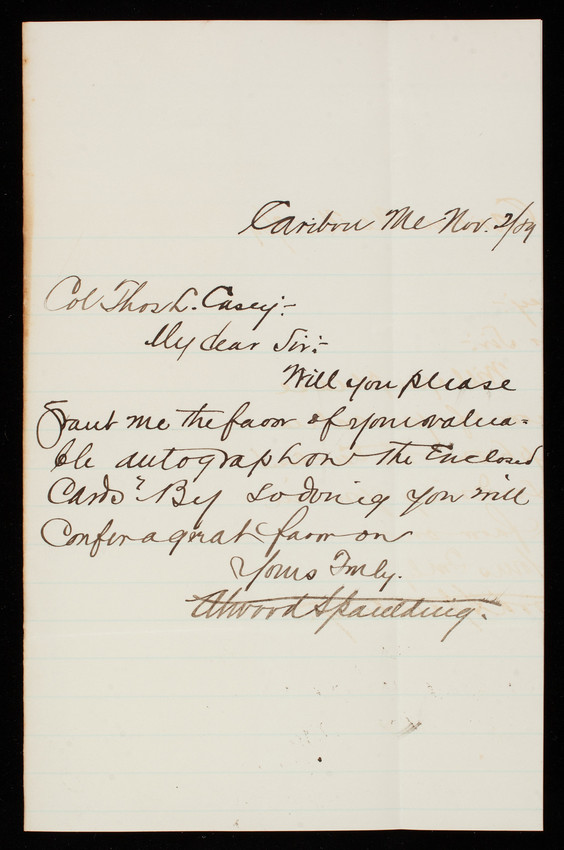 Caribou Me Nov. 2/89
Col Thos L. Casey:-
My dear Sir:-
Will you please
Grant me the favor of your valua-
ble autograph on the Enclosed
Cards? By so doing you will
Confer a great favor on
Yours Truly.
Atwood Spaulding.